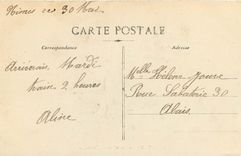 Nimes ce 30 Mai
CARTE POSTALE
Correspondance
Adresse
Arriverais Mardi
train 2 heures
Aline
Melle Hélène
Rue Sabaterie 30
Alais